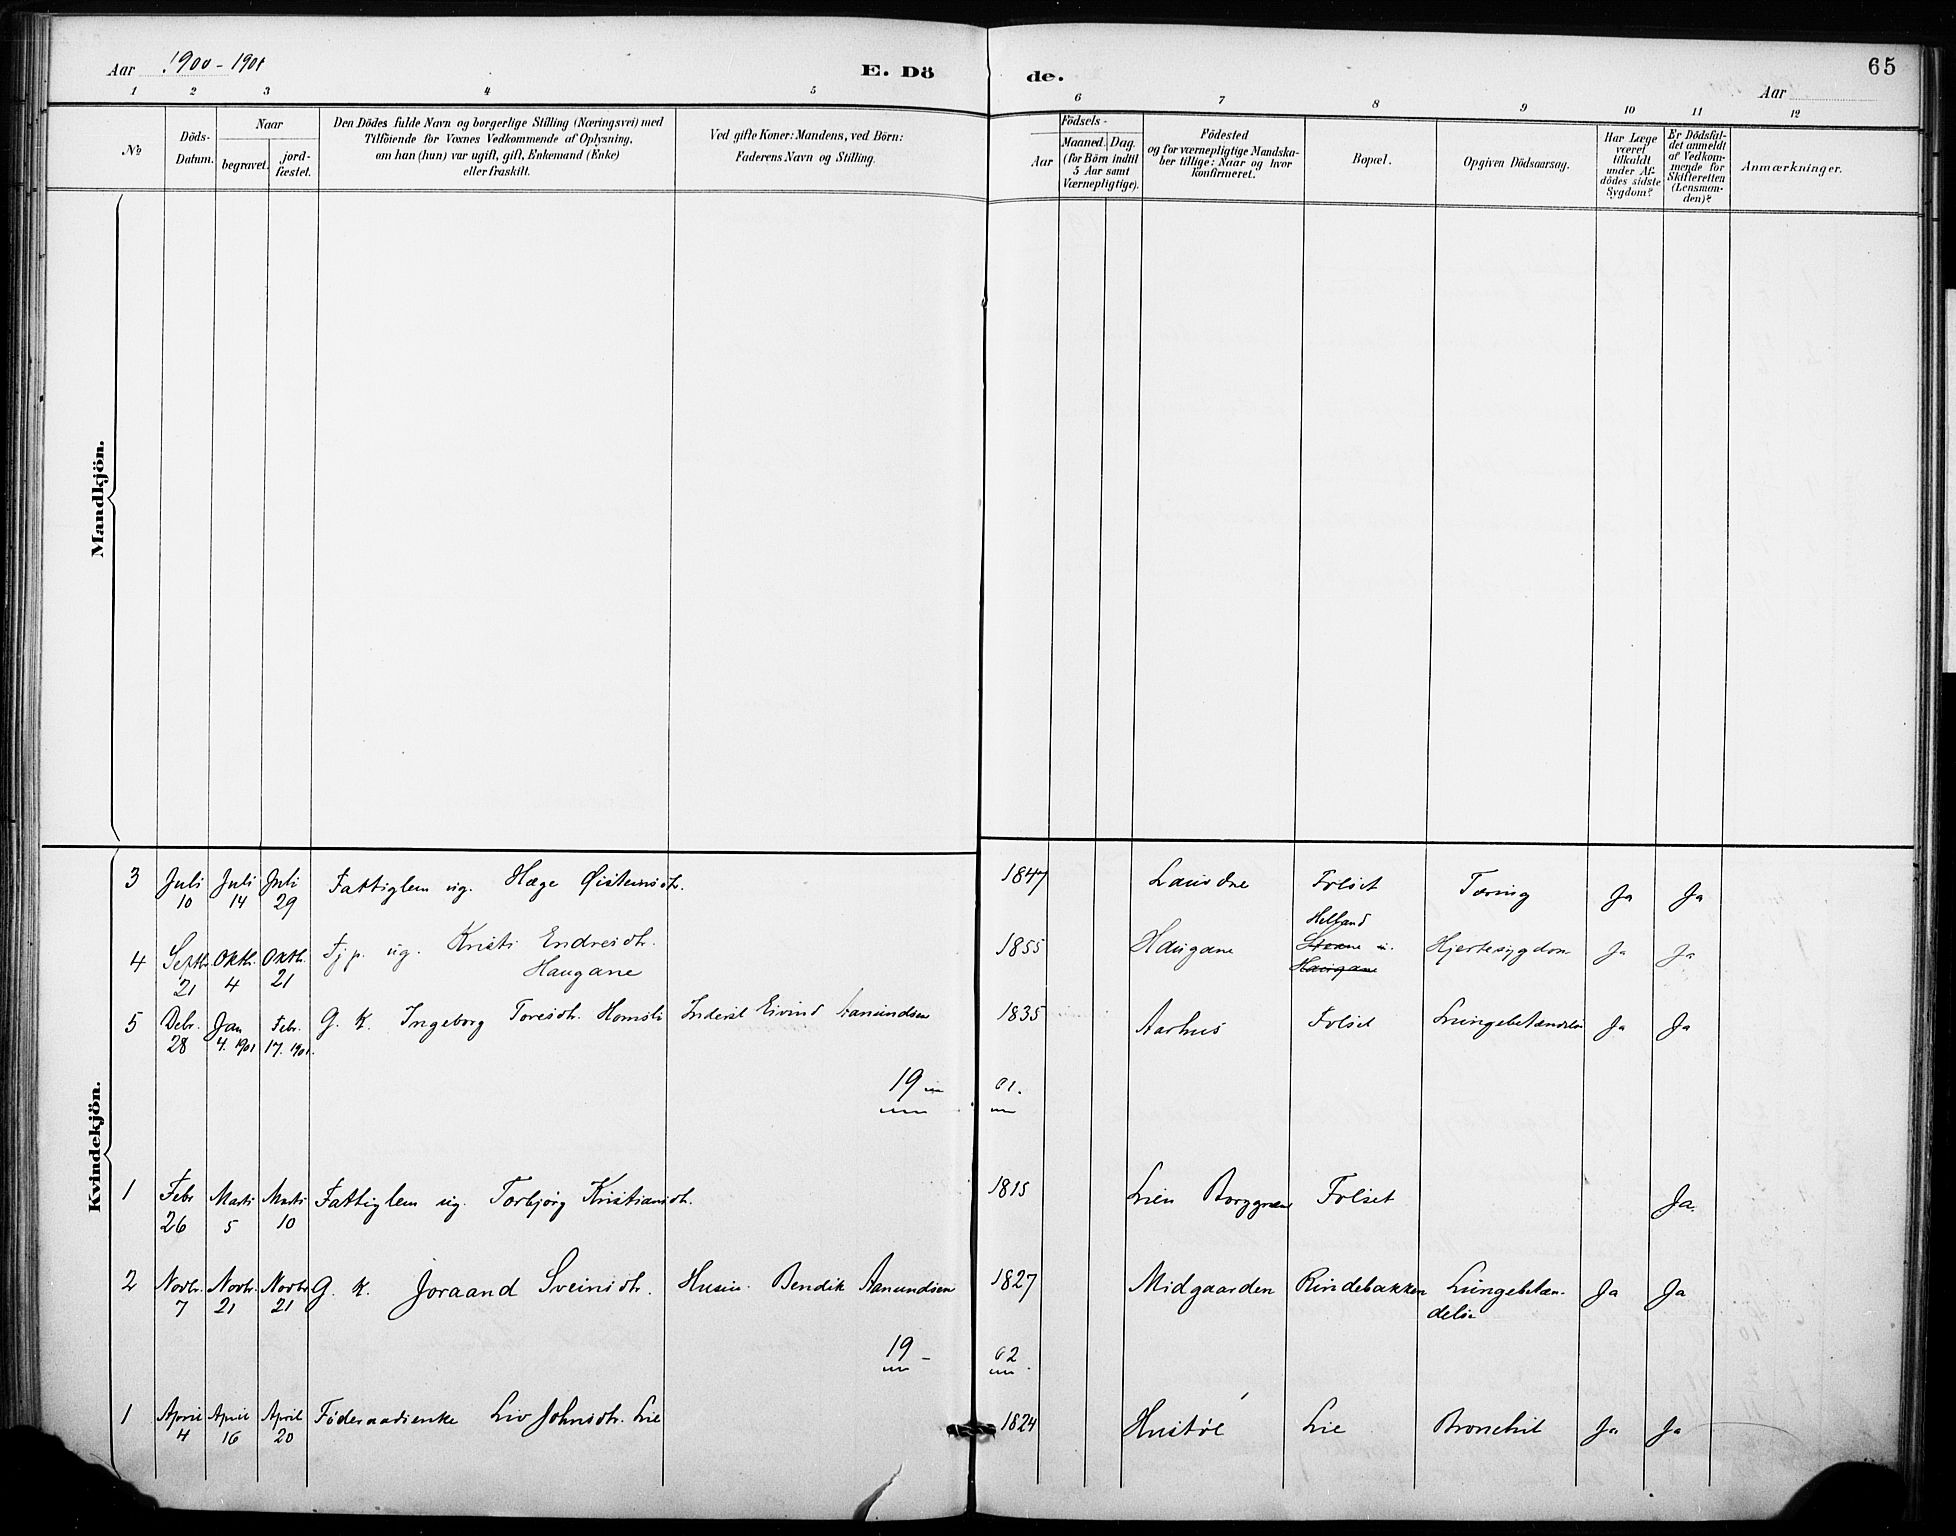 Aar 1900 - 1901 E. Dö de. Aar 65
1 2 3 4 5 6 7 8 9 10 11 12
№
Döds-Datum.
Naar
begravet.
jord-fæstet.
Den Dödes fulde Navn og borgerlige Stilling (Næringsvei) med
Tilföiende for Voxnes Vedkommende af Oplysning,
om han (hun) var ugift, gift, Enkemand (Enke)
eller fraskilt.
Ved gifte Koner: Mandens, ved Börn:
Faderens Navn og Stilling.
Födsels-
Aar
Maaned. Dag.
(for Börn indtil
5 Aar samt
Værnepligtige).
Födested
og for værnepligtige Mandska-
ber tillige: Naar og hvor
konfirmeret.
Bopæl.
Opgiven Dödsaarsag.
Har Læge
været
tilkaldt
under Af-
dödes sidste
Sygdom?
Er Dödsfal-
det anmeldt
af Vedkom-
mende for
Skifteretten
(Lensman-
den)?
Anmærkninger.
Mandkjön.
Kvindekjön.
3 Juli 10 Juli 14 Juli 29 Fattiglem ug. Hæge Øisteinsdtr. 1847 Folset Tæring Ja Ja
4 Septbr. 21 Oktbr. 4 Oktbr. 21 Tjp. ug. Kristi Endresdtr. Haugane 1855 Haugane Helland Haugane Hjertesygdom Ja Ja
5 Debr. 28 Jan 4. 1901 Febr. 17. 1901. G. K. Ingeborg Toresdtr. Homsli Inderst Eivind Aanundsen 1835 Aarhus Folset Lungebetændelse Ja Ja
19 01.
1 Febr 26 Marts 5 Marts 10 Fattiglem ug. Torbjørg Kristiansdtr. 1815 Lien Folset Ja.
2 Novbr. 7 Novbr. 21 Novbr. 21 G. K. Joraand Sveinsdtr. Husm. Bendik Aanundsen 1827 Midgaarden Rindebakken Lungebetæn-
delse Ja Ja
19 - 02
1 April 4 April 16 April 20 Føderaadsenke Liv Johnsdtr. Lie 1824 Lie Bronchit Ja Ja